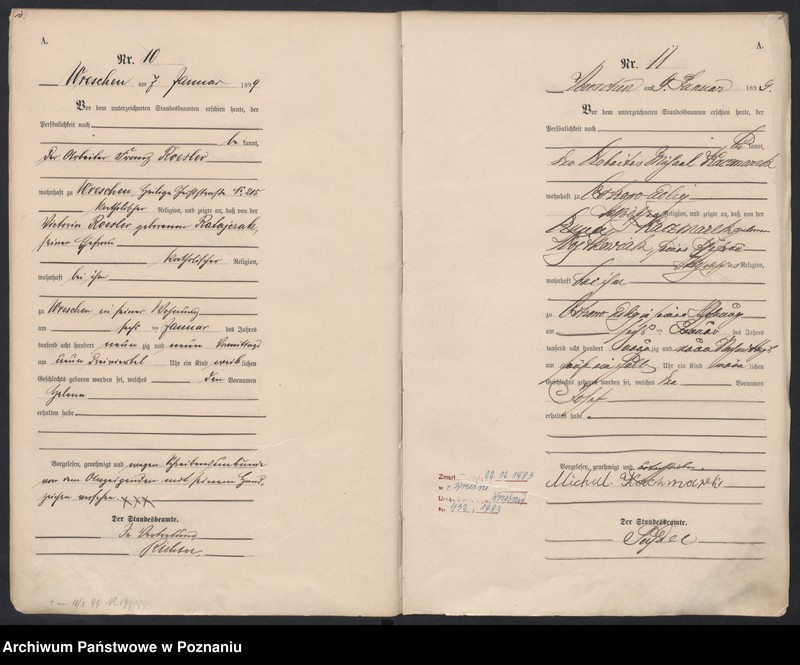 A.
Nr. 10
Wreschen am 7 Januar 1899
Vor dem unterzeichneten Standesbeamten erschien heute, der
Persönlichkeit nach
be kannt,
der Arbeiter Franz Roesler
wohnhaft zu Wreschen, Heilige Geiststraße No 215
katholischer Religion, und zeigte an, daß von der
Victoria Roesler geborenen Ratajczak,
seiner Ehefrau
katholischer Religion,
wohnhaft bei ihm
zu Wreschen in seiner Wohnung
am sechs ten Januar des Jahres
tausend acht hundert neun zig und neun Vormittags
um neun dreiviertel Uhr ein Kind weib lichen
Geschlechts geboren worden sei, welches den Vornamen
Helena
erhalten habe
Vorgelesen, genehmigt und wegen Schreibensunkunde
von dem Anzeigenden mit seinem Hand-
zeichen versehen XXX
Der Standesbeamte.
In Vertretung
A.
Nr. 11
Wreschen am 9. Januar 1899.
Vor dem unterzeichneten Standesbeamten erschien heute, der
Persönlichkeit nach
be kannt,
der Arbeiter Michael Kaczmarek
wohnhaft zu
katholischer Religion, und zeigte an, daß von der
Kaczmarek geborenen
seiner Ehefrau
katholischer Religion,
wohnhaft bei ihm
zu in seiner Wohnung
am sechs ten Januar des Jahres
tausend acht hundert neun zig und neun Nachmittags
um Uhr ein Kind männ lichen
Geschlechts geboren worden sei, welches den Vornamen
Josef
erhalten habe.
Vorgelesen, genehmigt und unterschrieben
Michal Kaczmarek
Der Standesbeamte.
Zmarł 22.02.1983
w Wrześni
Września
Nr 432 1983
Archiwum Państwowe w Poznaniu